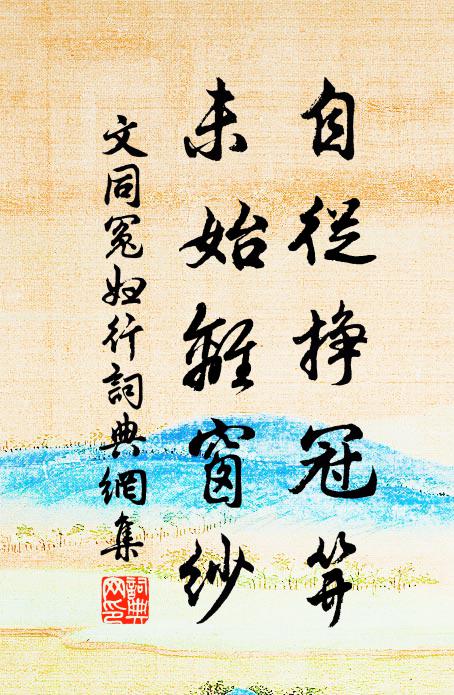 自從掙冠笄
未始離窗紗
文同冤妇行詞典網集
詞典网印